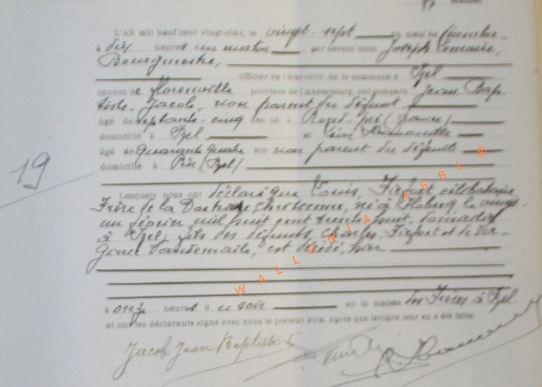 L'AN mil neuf cent vingt-cinq, le vingt-sept du mois de
à dix heures du matin par devant nous Joseph Lemaire,
Bourgmestre,
officier de l'état-civil de la commune d' Izel
canton de Florenville province de Luxembourg, ont comparu Jean Bap
tiste, Jacob, non parent du défunt
âgé de septante-cinq né à (France)
domicilié à Izel et
âgé de quarante quatre non parent du défunt
domicilié à Pin (Izel)
19
Lesquels nous ont déclaré que Louis, célibataire
Frère de la Doctrine Chrétienne, né à le vingt
un février mil huit cent trente huit, domicilié
à Izel, fils des défunts, Charles, et de Vir
ginie est décédé, hier
à onze heures du soir en la maison des Frères à Izel
et ont les déclarants signé avec nous le présent acte, après que lecture leur en a été faite.
Jacob Jean Baptiste
WALLONIA ASBL ©